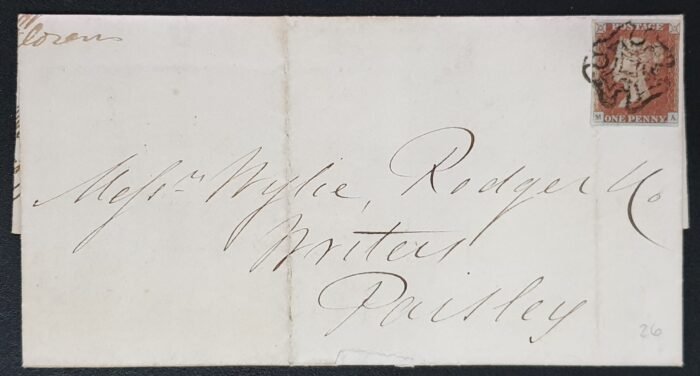 POSTAGE
M A
ONE PENNY
Messrs Wylie, Rodger & Co
Writers
Paisley
26